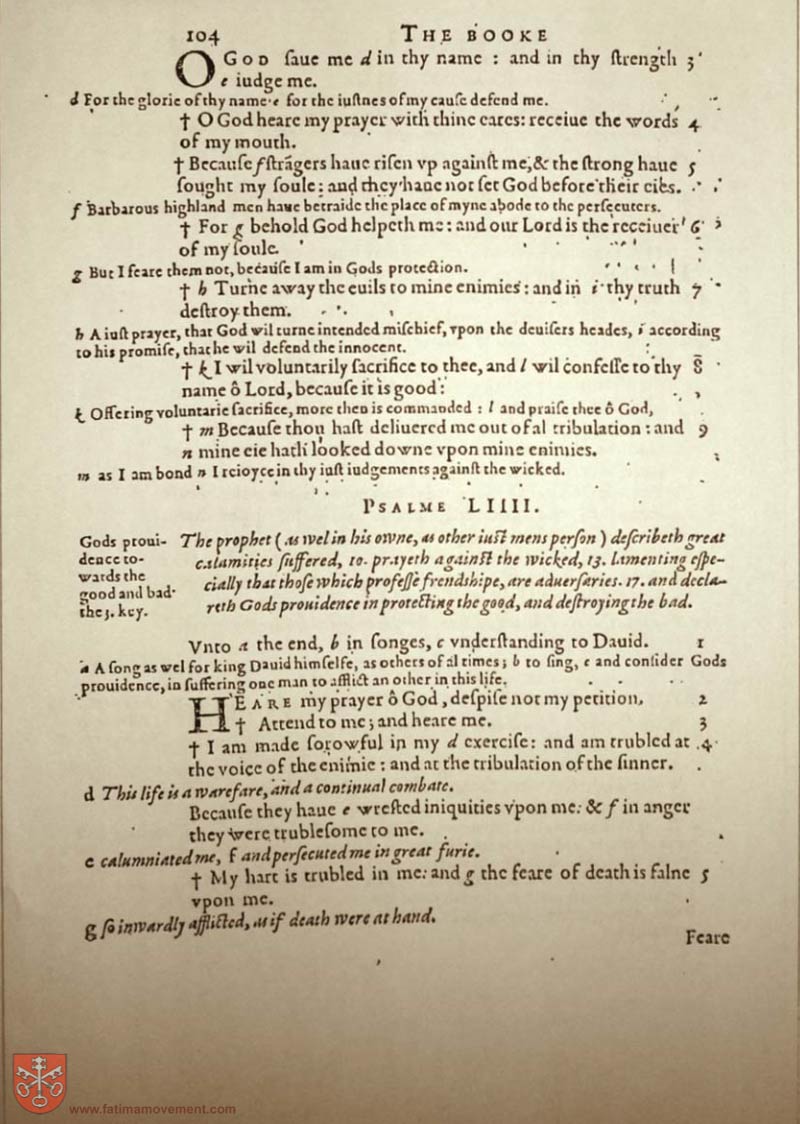 104 THE BOOKE
O GOD ſaue me d in thy name : and in thy ſtrength 3
e iudge me.
d For the glorie of thy name· e for the iuſtnes of my cauſe defend me.
† O God heare my prayer with thine eares: receiue the words 4
of my mouth.
† Becauſe f ſtrãgers haue riſen vp againſt me, & the ſtrong haue 5
ſought my ſoule: and they haue not ſet God before their eies.
f Barbarous highland men haue betraide the place of myne abode to the perſecuters.
† For g behold God helpeth me: and our Lord is the receiuer 6
of my ſoule.
g But I feare them not, becauſe I am in Gods protection.
† h Turne away the euils to mine enimies: and in i thy truth 7
deſtroy them.
h A iuſt prayer, that God wil turne intended miſchief, vpon the deuiſers heades, i according
to his promiſe, that he wil defend the innocent.
† k I wil voluntarily ſacrifice to thee, and l wil confeſſe to thy 8
name ô Lord, becauſe it is good:
k Offering voluntarie ſacrifice, more then is commanded : l and praiſe thee ô God,
† m Becauſe thou haſt deliuered me out of al tribulation : and 9
n mine eie hath looked downe vpon mine enimies.
m as I am bond n I reioyce in thy iuſt iudgements againſt the wicked.
PSALME LIIII.
Gods proui-
dence to-
wards the
good and bad
the 3. key.
The prophet (as wel in his owne, as other iuſt mens perſon) deſcribeth great
calamities ſuffered, 10. prayeth againſt the wicked, 13. lamenting eſpe-
cially that thoſe which profeſſe frendſhipe, are aduerſaries. 17. and decla-
reth Gods prouidence in protecting the good, and deſtroying the bad.
Vnto a the end, b in ſonges, c vnderſtanding to Dauid. 1
a A ſong as wel for king Dauid himſelfe, as others of al times; b to ſing, c and conſider Gods
prouidence, in ſuffering one man to afflict an other in this life.
HEARE my prayer ô God, deſpiſe not my petition, 2
† Attend to me; and heare me. 3
† I am made ſorowful in my d exerciſe: and am trubled at 4
the voice of the enimie : and at the tribulation of the ſinner.
d This life is a warefare, and a continual combate.
Becauſe they haue e wreſted iniquities vpon me: & f in anger
they were trubleſome to me.
e calumniated me, f and perſecuted me in great furie.
† My hart is trubled in me: and g the feare of death is falne 5
vpon me.
g ſo inwardly afflicted, as if death were at hand.
Feare
www.fatimamovement.com